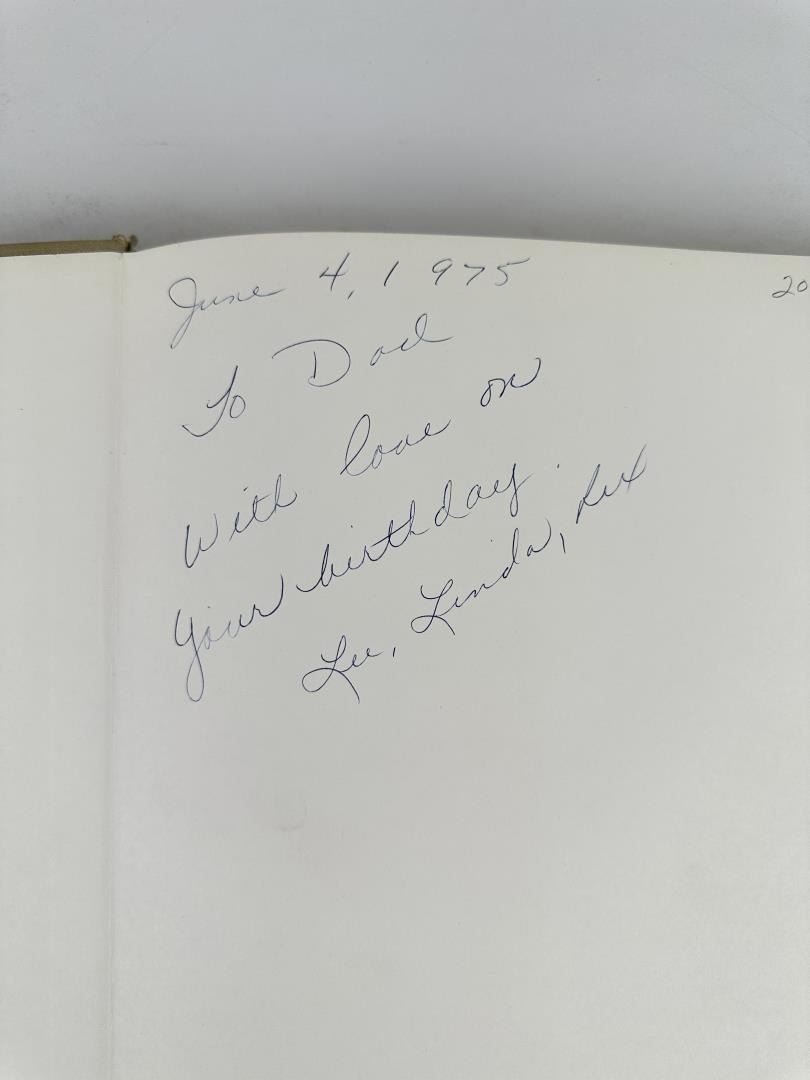 June 4, 1975
20
To Dad
With love on
your birthday.
Lee, Linda, Rex